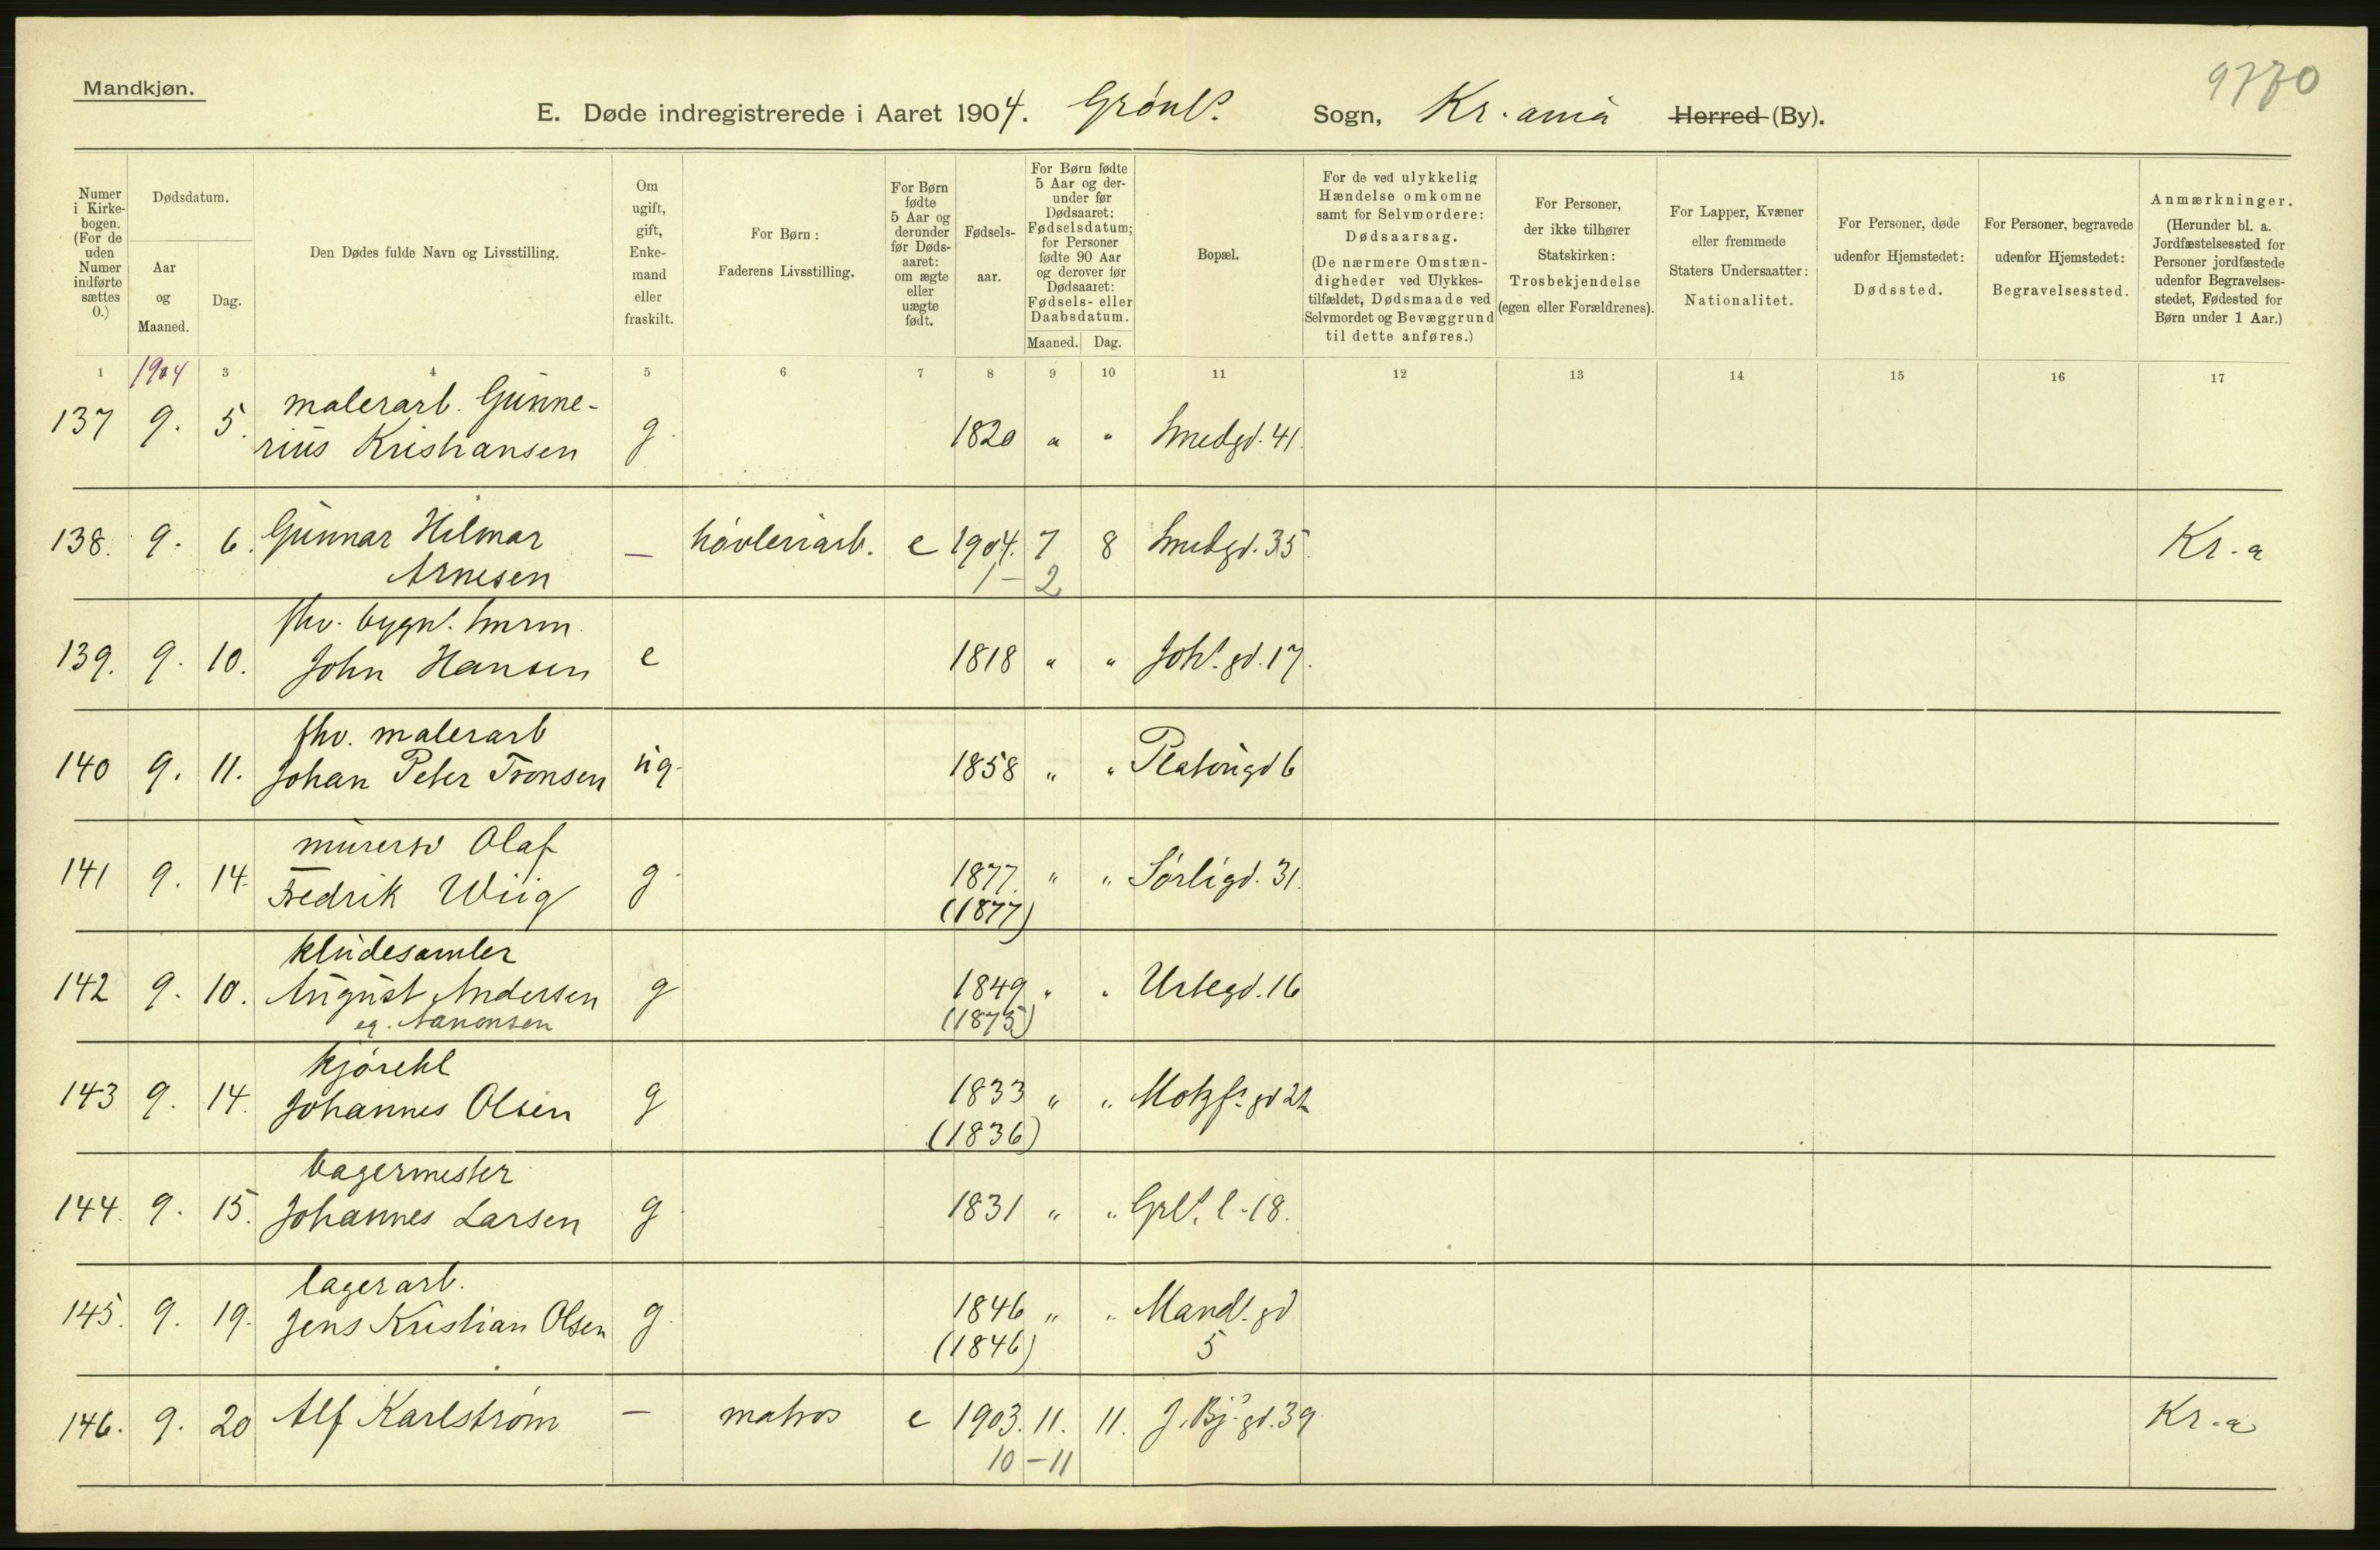 Mandkjøn.
9770
E. Døde indregistrerede i Aaret 1904. Grønl. Sogn, Kr.ania Herred (By).
Numer i Kirkebogen. (For de uden Numer indførte sættes 0.)
Dødsdatum.
Aar og Maaned.
Dag.
Den Dødes fulde Navn og Livsstilling.
Om ugift, gift, Enkemand eller fraskilt.
For Børn: Faderens Livsstilling.
For Børn fødte 5 Aar og derunder før Dødsaaret: om ægte eller uægte født.
Fødselsaar.
For Børn fødte 5 Aar og derunder før Dødsaaret: Fødselsdatum; for Personer fødte 90 Aar og derover før Dødsaaret: Fødsels- eller Daabsdatum.
Maaned. Dag.
Bopæl.
For de ved ulykkelig Hændelse omkomne samt for Selvmordere: Dødsaarsag. (De nærmere Omstændigheder ved Ulykkestilfældet, Dødsmaade ved Selvmordet og Bevæggrund til dette anføres.)
For Personer, der ikke tilhører Statskirken: Trosbekjendelse (egen eller Forældrenes).
For Lapper, Kvæner eller fremmede Staters Undersaatter: Nationalitet.
For Personer, døde udenfor Hjemstedet: Dødssted.
For Personer, begravede udenfor Hjemstedet: Begravelsessted.
Anmærkninger. (Herunder bl. a. Jordfæstelsessted for Personer jordfæstede udenfor Begravelsesstedet, Fødested for Børn under 1 Aar.)
1 1904 3 4 5 6 7 8 9 10 11 12 13 14 15 16 17
malerarb. Gunne-
137 9. 5. rius Kristiansen g. 1820 " " Smedgd. 41.
138. 9. 6. Gunnar Hilmar — høvleriarb. e 1904. 7 8 Smedgd. 35. Kr.a
Arnesen 1 - 2
fhv. bygn.
139. 9. 10. John Hansen e 1818 " " Joh. gd. 17.
fhv. malerarb
140 9. 11. Johan Peter Tronsen ug. 1858 " " Platougd 6
murersv Olaf
141 9. 14. Fredrik Wiig g. 1877. " " Sørligd. 31.
(1877)
kludesamler
142 9. 10. August Andersen g 1849 " " Urtegd. 16
eg. Aanonsen (1875)
kjørekl
143 9. 14. Johannes Olsen g 1833 " " Motzf. gd 22
(1836)
bagermester
144. 9. 15. Johannes Larsen g 1831 " " Grl. l. 18.
lagerarb.
145. 9. 19. Jens Kristian Olsen g. 1846 " " Mandl. gd
(1846) 5
146. 9. 20 Alf Karlstrøm — matros e 1903. 11. 11. J. Bj. gd. 39 Kr.a
10 - 11